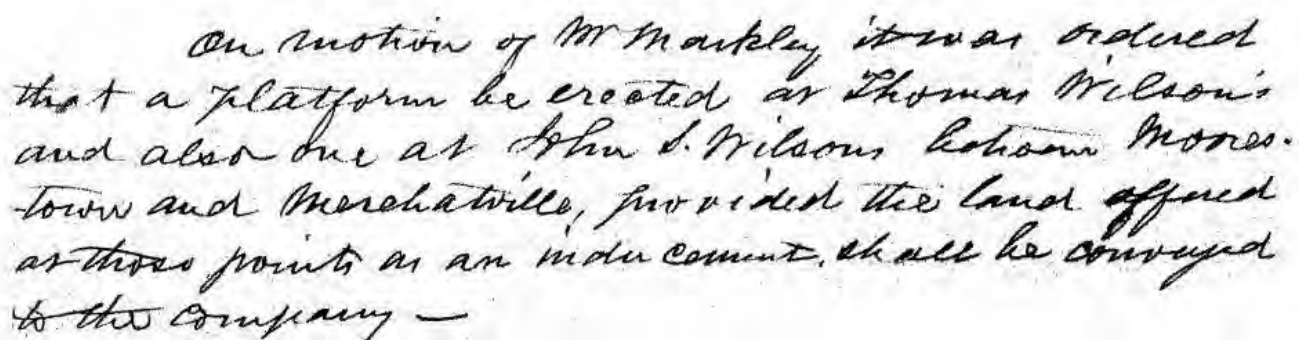 On motion of Mr Markley it was ordered
that a platform be erected at Thomas Wilson's
and also one at John S. Wilsons between Moores-
town and Merchatville, provided the land offered
at those points as an inducement, shall be conveyed
to the Company —